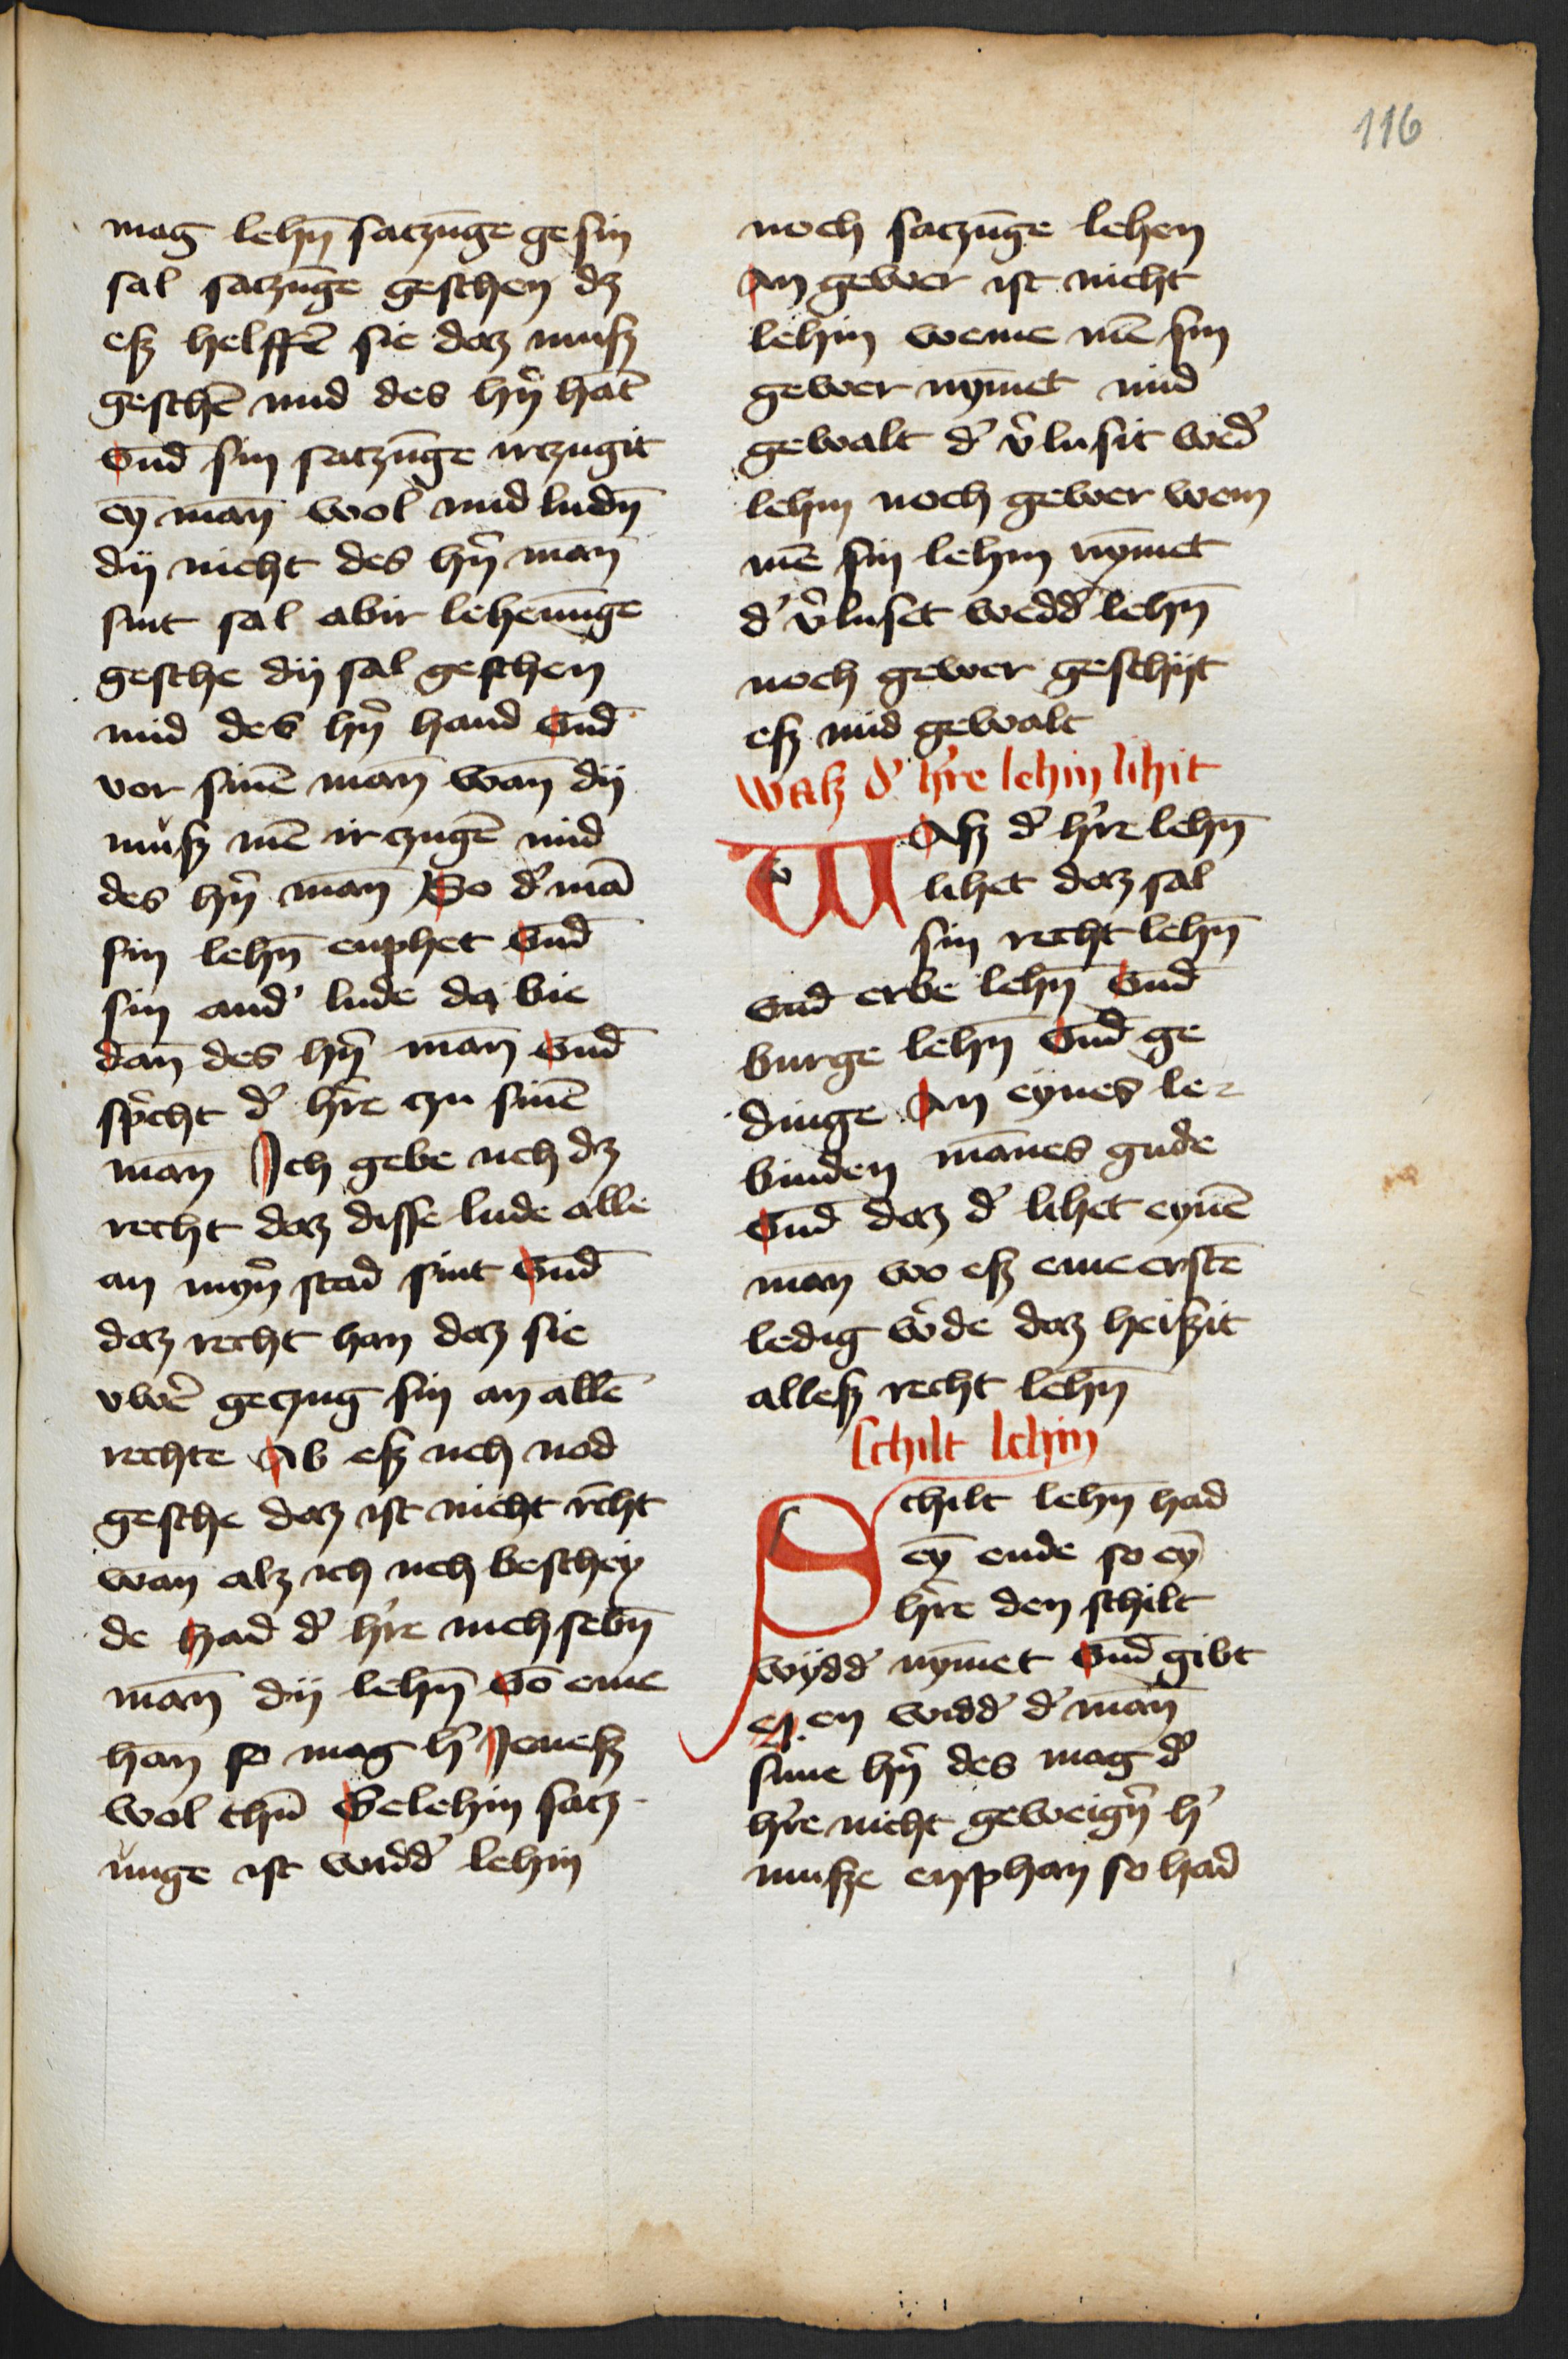 116
mag lehn̄ satzūge gesin
sal satzūge geschen dz
esz helffē sie daz musz
geschē mid des hn̄ hāt
Vnd̄ sin satzūge irzugit
eȳ man̄ wol mid ludn̄
dij nicht des hn̄ man̄
sint sal abir leheūnge
gesche dij sal geschen
mid des hn̄ hand Vnd̄
vor sinē man̄ wan̄ dij
musz mē ir zugē mid
des hn̄ man̄ So d' mā
sin lehn̄ enphet Vnd̄
sin and' lude da bie
dan̄ des hn̄ man̄ Vnd̄
spricht d' h're czu sinē
man̄ Ich gebe uch dz
recht daz disse lude alle
an myn̄ stad sint Vnd̄
daz recht han daz sie
vwē geczug sin an allē
rechte Ab esz uch nod
gesche daz ist nicht rēcht
wan̄ alz ich uch beschey
de Had d' h're nich sebn̄
man̄ dij lehn̄ Vō eme
han̄ so mag h' Jenesz
wol thū Gelehin satz
unge ist widd' lehin
noch satzūge lehen
An gewer ist nicht
lehin weme mē sin
gewer nȳmet mid
gewalt d' v'lusit wed'
lehin noch gewer wem
mē sin lehin nȳmet
d' v'luset wedd' lehn̄
noch gewer geschijt
esz mid gewalt
Wasz d' h're lehin lihit
WAsz d' h're lehn̄
lihet daz sal
sin recht lehn̄
vnd̄ erbe lehn̄ Vnd̄
burge lehn̄ Vnd̄ ge
dinge An eynes le-
binden mānes gude
Vnd̄ daz d' lihet eynē
man̄ wo esz eme erstē
ledig w'de daz heiszit
allesz recht lehn̄
schilt lehin
Schilt lehn̄ had
eȳ ende so eȳ
h're den schilt
wydd' nȳmet Vnd̄ gibt
en widd' d' man̄
sime hn̄ des mag d'
h're nicht geweign̄ h'
musze enphan so had